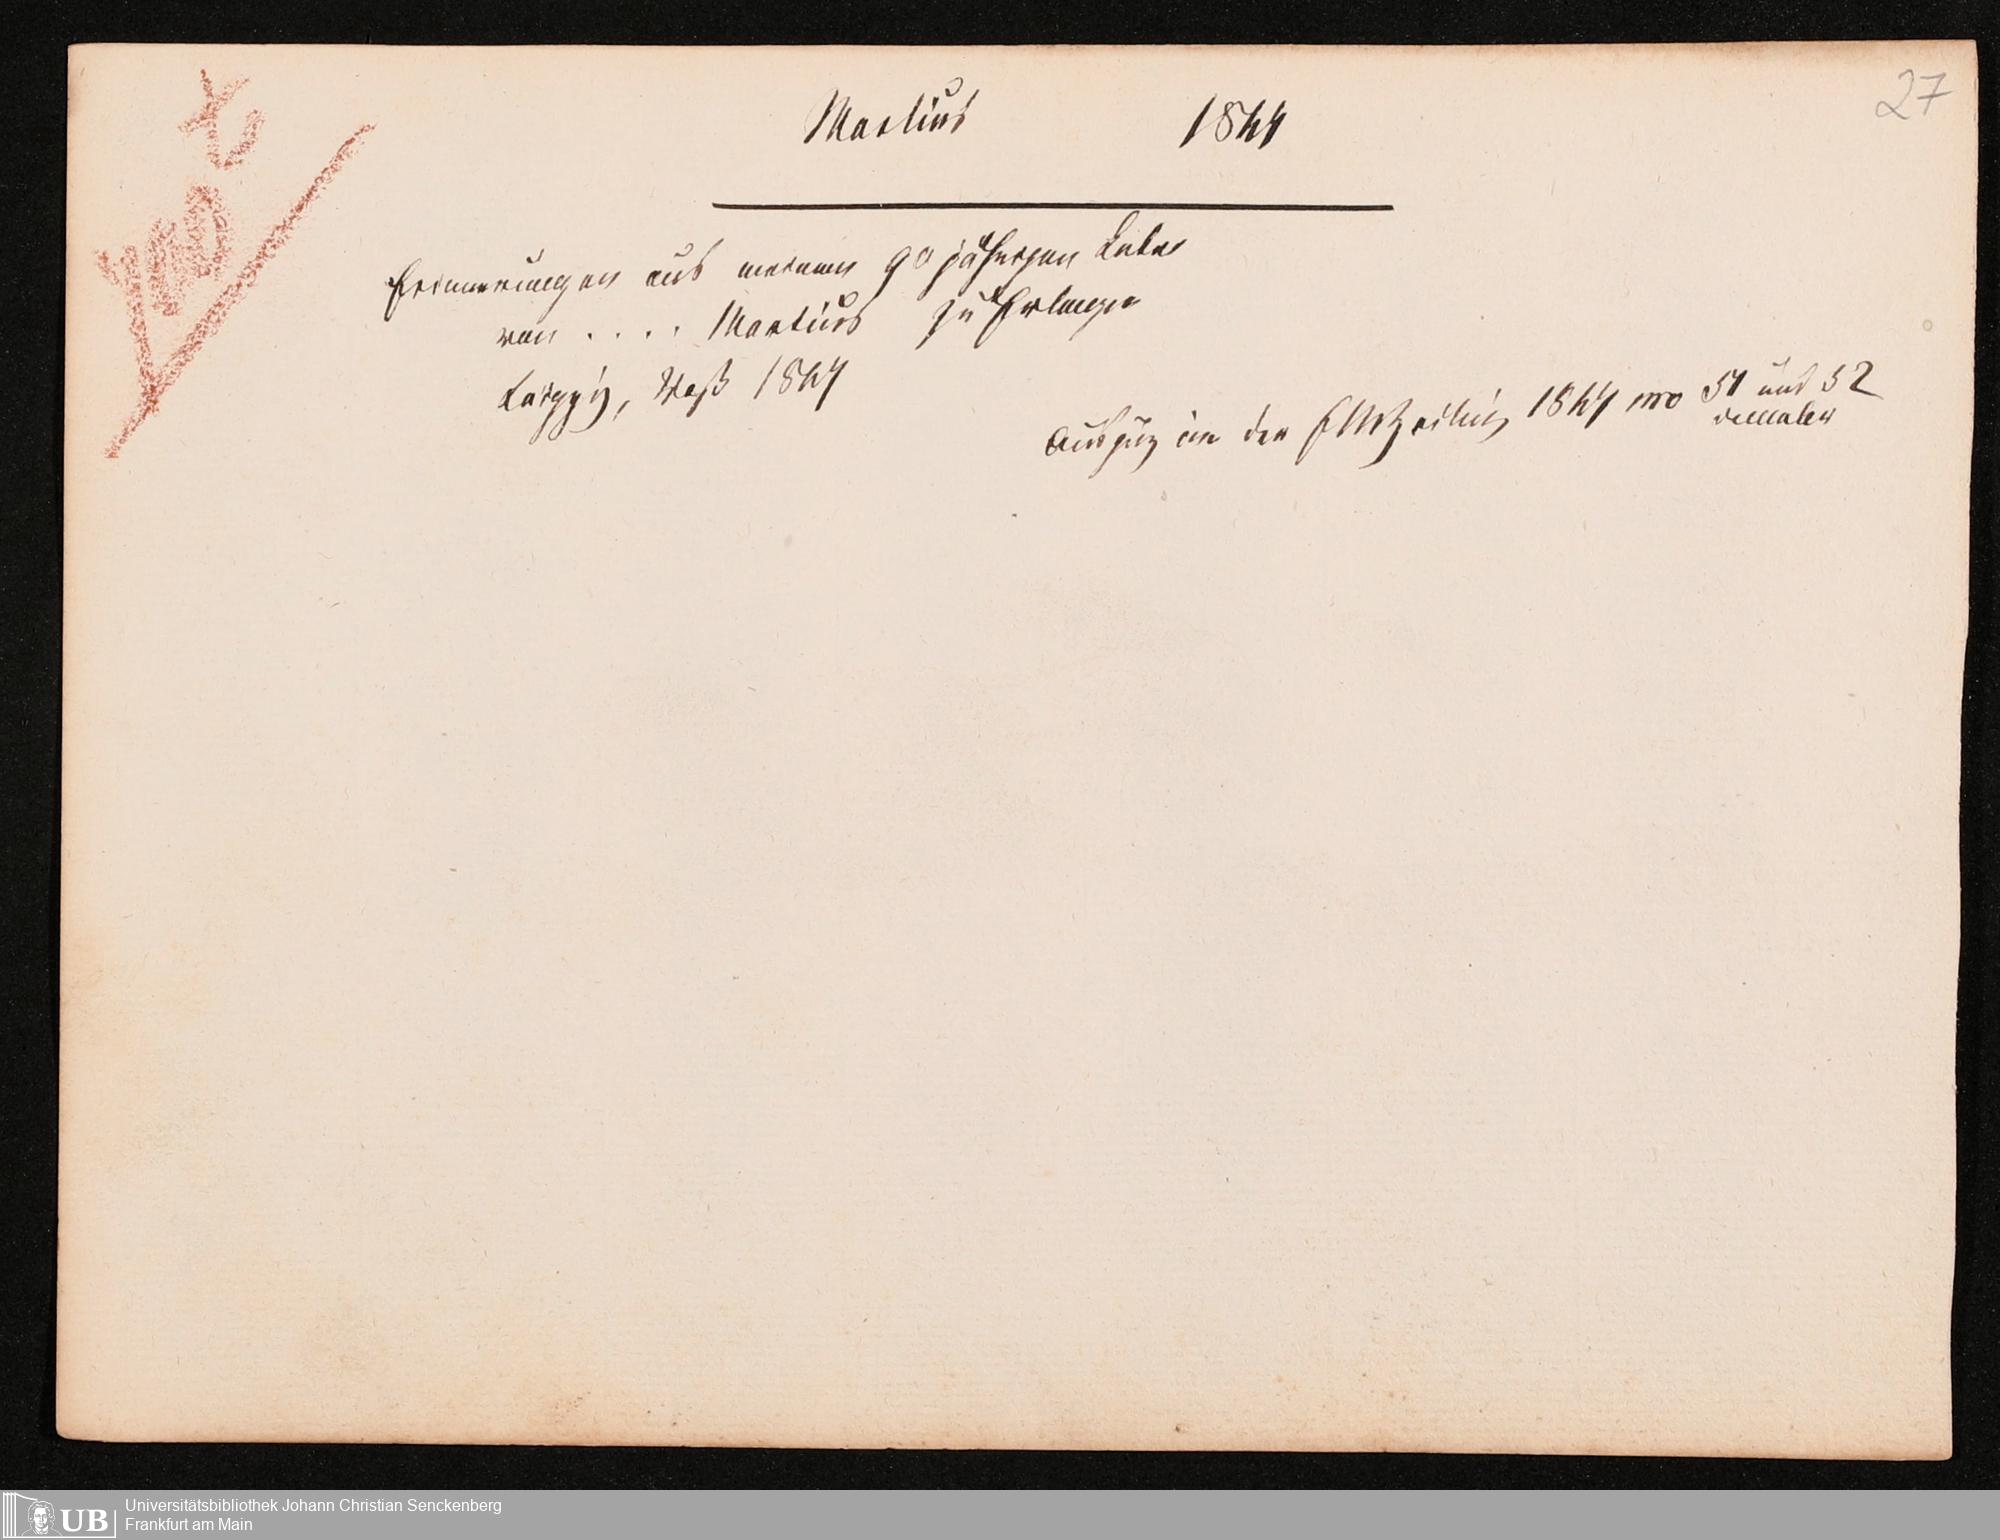 27
Martius 1844
Erinnerungen aus meinem 90 jährigen Leben
von .... Martius zu Erlangen
Leipzig, Voß 1847
Auszug in der Zeitung 1847 nro 51 und 52
december
Universitätsbibliothek Johann Christian Senckenberg
UB Frankfurt am Main